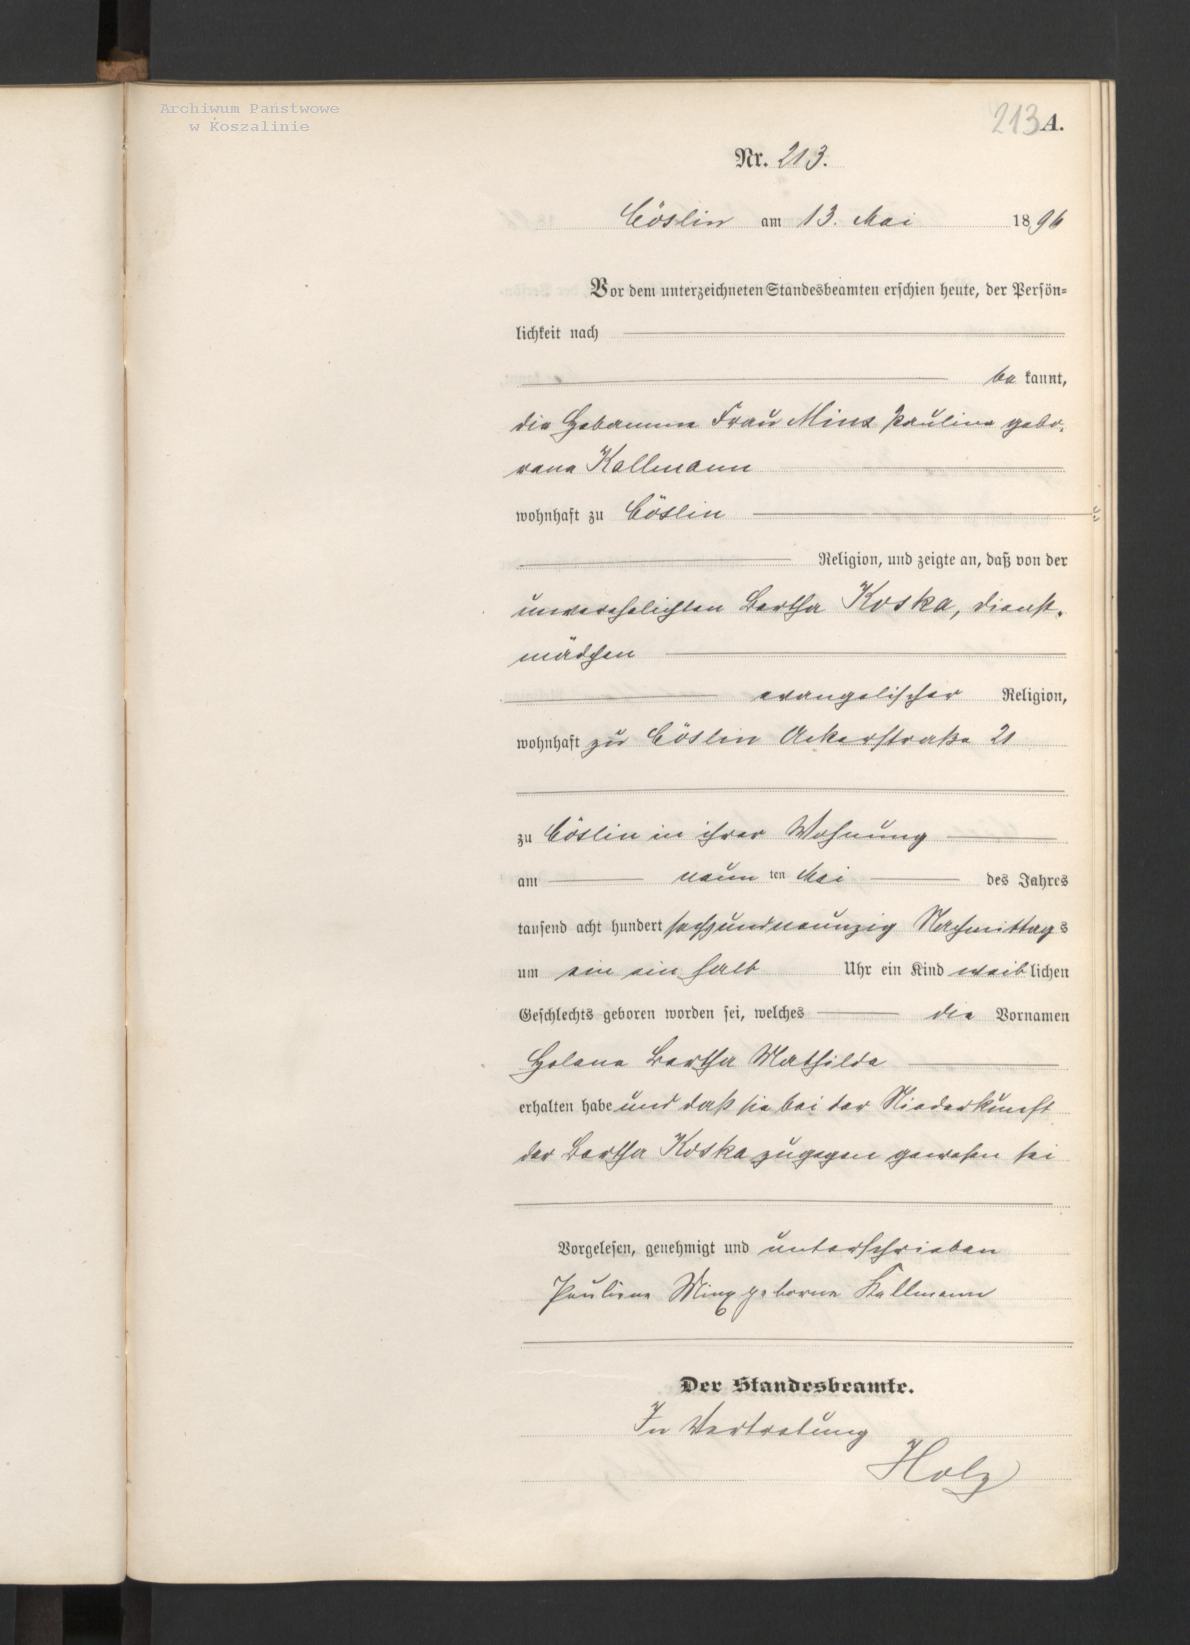 Archiwum Państwowe
w Koszalinie
213 A.
Nr. 213.
Cöslin am 13. Mai 1896
Vor dem unterzeichneten Standesbeamten erschien heute, der Persön=
lichkeit nach
be kannt,
die Hebamme Frau Minx Pauline gebo=
rene Kallmann
wohnhaft zu Cöslin
Religion, und zeigte an, daß von der
unverehelichten Bertha Koska, Dienst=
mädchen
evangelischer Religion,
wohnhaft zu Cöslin Ackerstraße 21
zu Cöslin in ihrer Wohnung
am neun ten Mai des Jahres
tausend acht hundert sechsundneunzig Nachmittags
um ein ein halb Uhr ein Kind weiblichen
Geschlechts geboren worden sei, welches die Vornamen
Helene Bertha Mathilde
erhalten habe und daß sie bei der Niederkunft
der Bertha Koska zugegen gewesen sei
Vorgelesen, genehmigt und unterschrieben
Pauline Minx geborne Kallmann
Der Standesbeamte.
In Vertretung
Holz